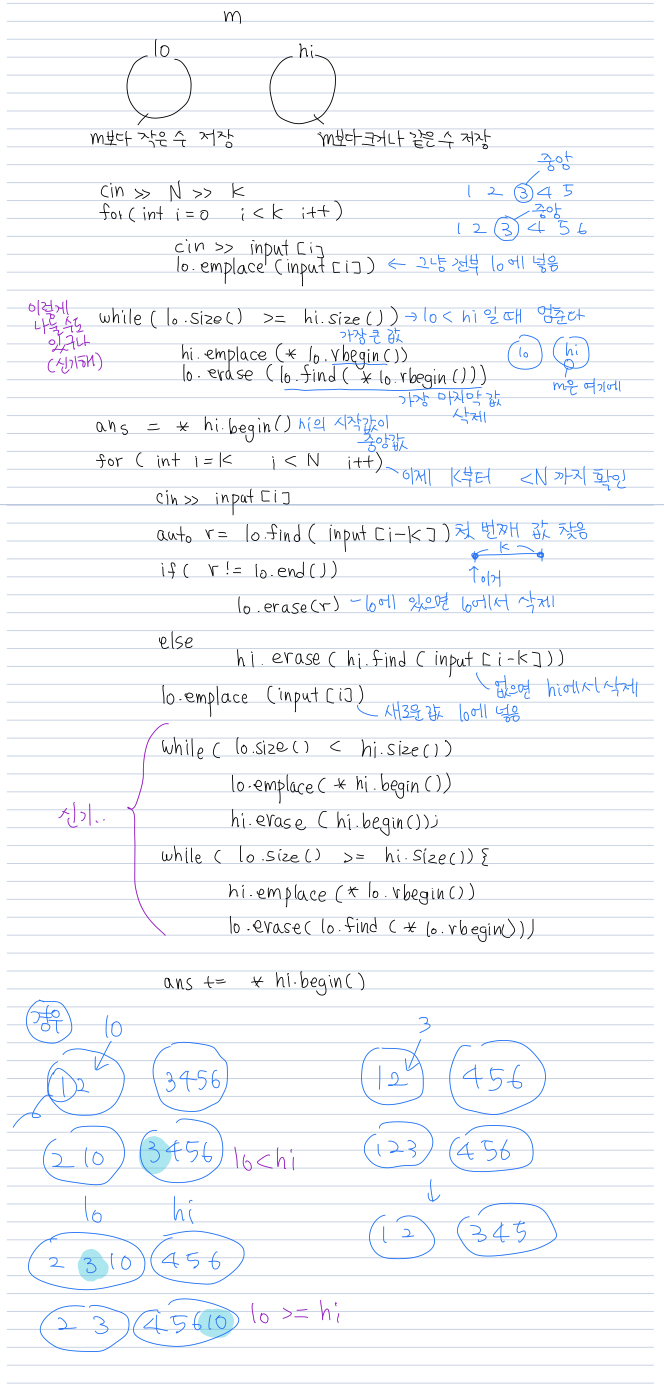 m
lo hi
m보다 작은 수 저장 m보다 크거나 같은 수 저장
중앙
cin >> N >> K 1 2 3 4 5
for( int i=0 i<K i++) 중앙
1 2 3 4 5 6
cin >> input [i]
lo.emplace (input [i]) ← 그냥 전부 lo에 넣음
이렇게
나눌 수도
있구나
(신기해)
while ( lo.size() >= hi.size()) → lo < hi 일 때 멈춘다
가장 큰 값
hi.emplace (* lo.rbegin()) lo hi
lo.erase (lo.find( * lo.rbegin())) m은 여기에
가장 마지막 값
삭제
ans = * hi.begin() hi의 시작값이
중앙값
for ( int i=K i<N i++) 이제 K부터 <N 까지 확인
cin >> input [i]
auto r= lo.find( input [i-K]) 첫 번째 값 찾음
K
if( r != lo.end()) ↑이거
lo.erase(r) - lo에 있으면 lo에서 삭제
else
hi.erase( hi.find ( input [i-K]))
없으면 hi에서 삭제
lo.emplace (input [i])
새로운 값 lo에 넣음
while ( lo.size() < hi.size())
lo.emplace( * hi.begin())
신기..
hi.erase (hi.begin());
while ( lo.size() >= hi.size()) {
hi.emplace (* lo.rbegin())
lo.erase( lo.find (* lo.rbegin()))
ans += * hi.begin()
경우 10 3
1 2 3 4 5 6 1 2 4 5 6
2 10 3 4 5 6 lo<hi 1 2 3 4 5 6
↓
lo hi
2 3 10 4 5 6 1 2 3 4 5
2 3 4 5 6 10 lo >= hi